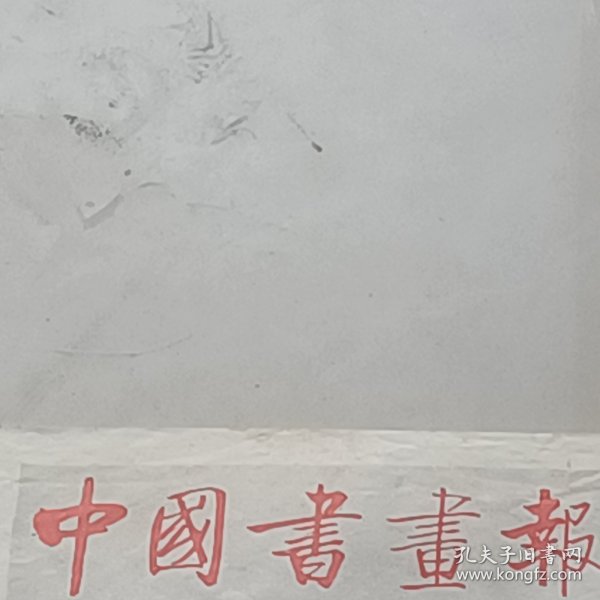 中國書畫報
孔夫子旧書网
www.kongfz.com